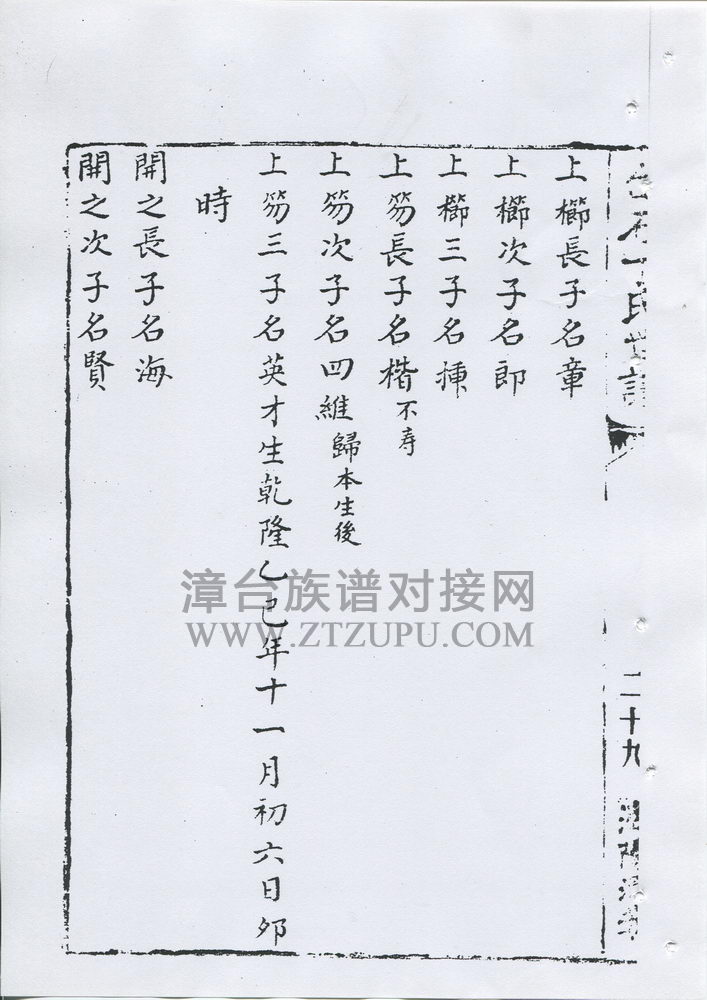 上櫛長子名章
上櫛次子名郎
上櫛三子名揀
上笏長子名楷不寿
上笏次子名四維歸本生後
上笏三子名英才生乾隆乙巳年十一月初六日夘
時
開之長子名海
開之次子名賢
二十九
漳台族谱对接网
WWW.ZTZUPU.COM